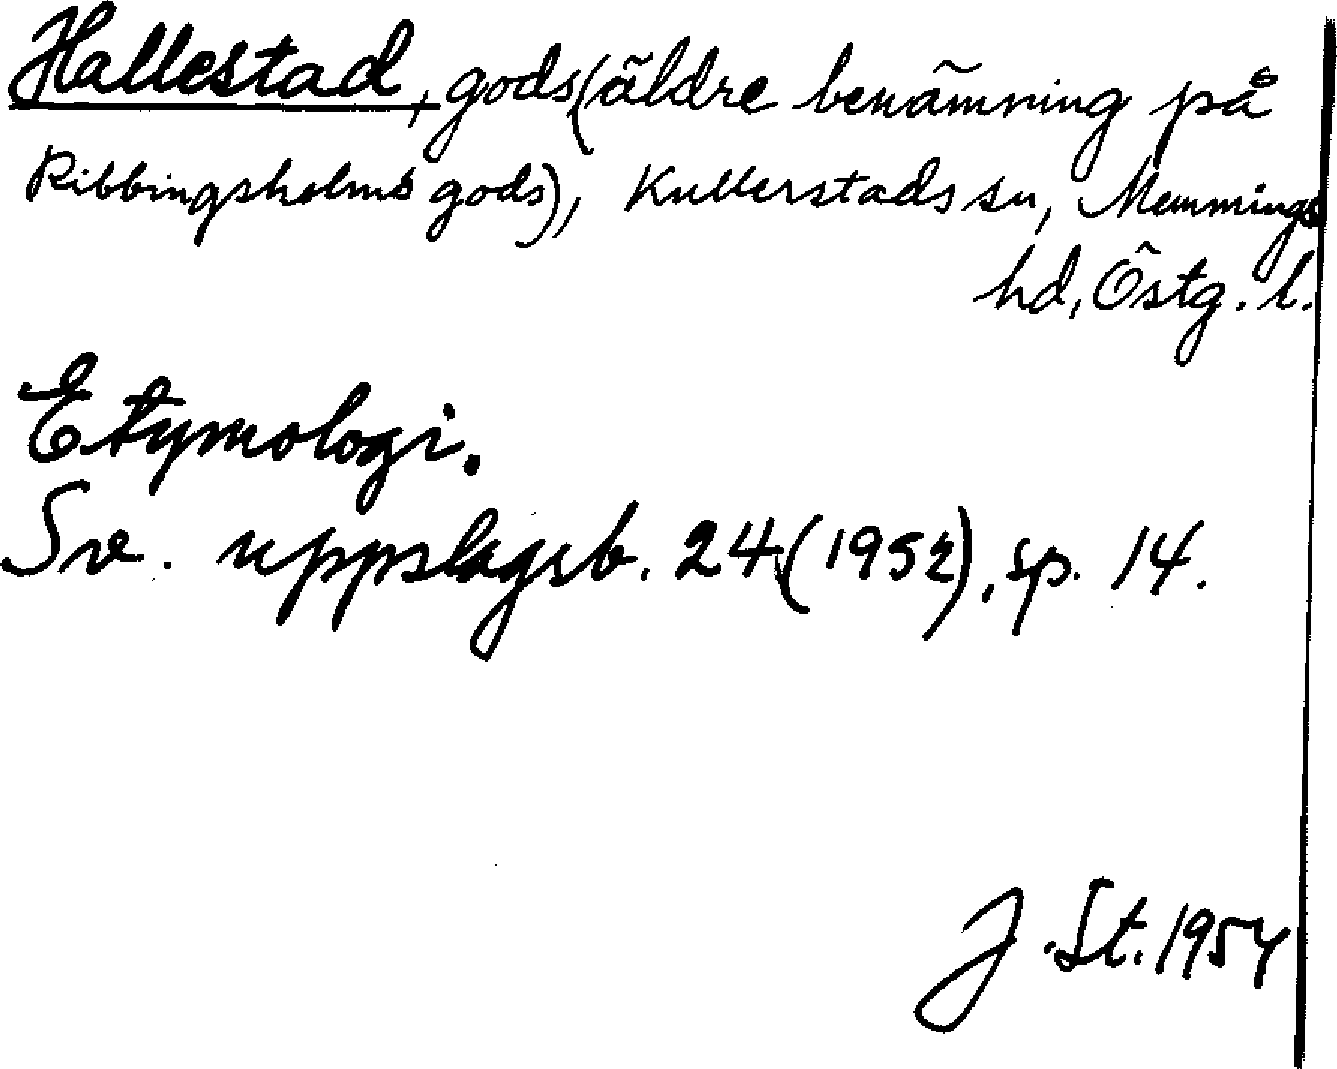 Hallestad, gods (äldre benämning på
Ribbingsholms gods), Kullerstads sn, Memmings
hd, Östg. l.
Etymologi.
Sv. uppslagsb. 24 (1952), sp. 14.
J. St. 1954